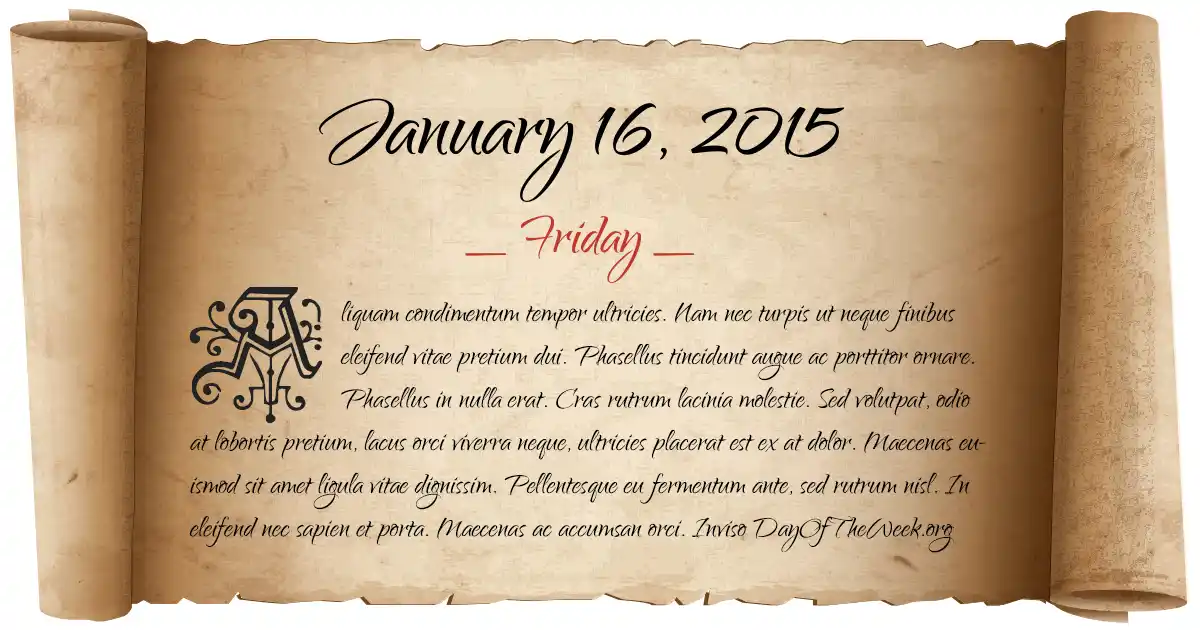 January 16, 2015
_ Friday _
Aliquam condimentum tempor ultricies. Nam nec turpis ut neque finibus
eleifend vitae pretium dui. Phasellus tincidunt augue ac porttitor ornare.
Phasellus in nulla erat. Cras rutrum lacinia molestie. Sed volutpat, odio
at lobortis pretium, lacus orci viverra neque, ultricies placerat est ex at dolor. Maecenas eu-
ismod sit amet ligula vitae dignissim. Pellentesque eu fermentum ante, sed rutrum nisl. In
eleifend nec sapien et porta. Maecenas ac accumsan orci. Inviso DayOfTheWeek.org